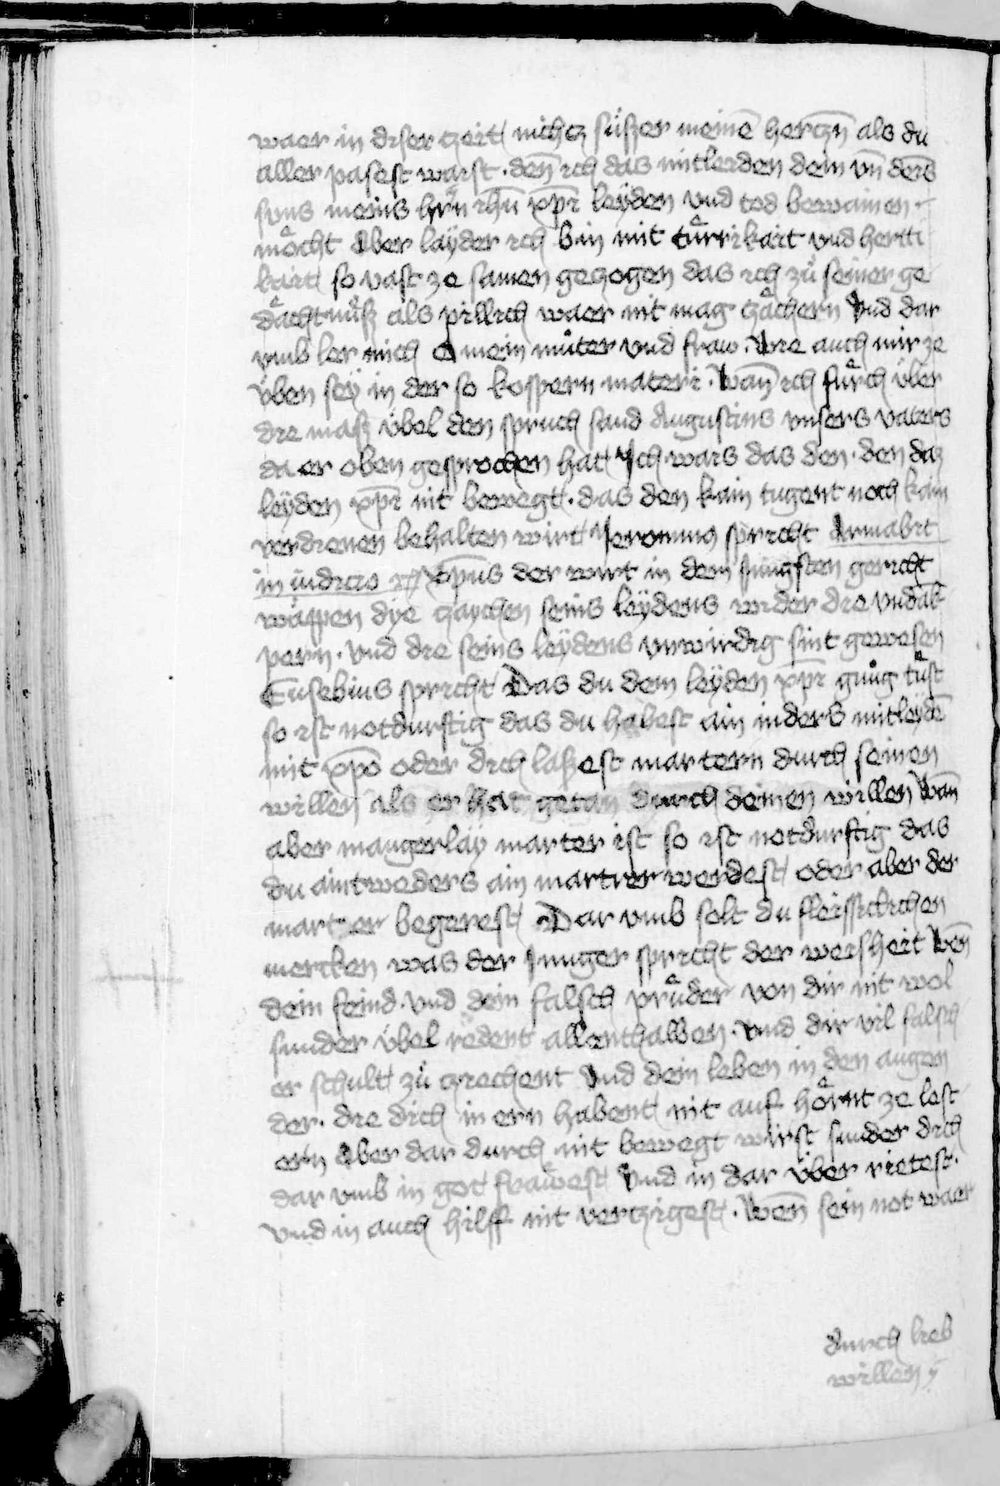 waer in diser czeit nichcz süßer meinē herczn̄ als du
aller pasest warst · den̄ ich das mitleiden dein vn̄ deīs
suns meins hrn̄ ihū xp̄i leyden vnd tod bewainen ·
möcht Aber layder ich bin mit tuͤrrikait vnd hertti
kait so vast ze samen geczogen das ich zuͦ seiner ge
daͤchtnuͤß als pillich waer nit mag czaͤchern Vnd dar
vmb ler mich O mein muͦter vnd fraw · Wie auch mir ze
vͤben sey in der so kospern materi · Wan̄ ich fuͤrch vͤber
die maß vͤbel den spruch sand Augustins vnsers vaters
da er oben gesprochen hat Ich wais das den · den daz
leyden xp̄i nit bewegt · das den kain tugent noch kain
verdienen behalten wirt Jeronimus spricht Armabit
in iudicio xp̄us der wirt in dem jungsten gericht
wappen dye czaychen seins leydens wider die vndāk
pern · vnd die seins leydens vnwirdig sint gewesen
Eusebius spricht Das du dem leyden xp̄i gnuͦg tuͤst
so ist notdurftig das du habest ain inders mitleydē
mit xp̄o oder dich laßest martern durch seinen
willen als er hat getan durch deinen willen Wan̄
aber mangerlay marter ist so ist notdurftig das
du aintweders ain martrer werdest oder aber der
marter begerest Dar vmb solt du fleissicklichen
mercken was der Junger spricht der weisheit Wen̄
dein feind · vnd dein falsch pruͤder von dir nit wol
sunder vͤbel redent allenthalben · vnd dir vil falsch
er schult zuͦ cziechent Vnd dein leben in den augen
der · die dich in ern habent nit auf hoͤrnt ze lest
ern Aber dar durch nit bewegt wirst sunder dich
dar vmb in got frawest Vnd in dar vͤber rietest ·
vnd in auch hilff nit verczigest · Wen̄ sein not waer
durch lieb
willen